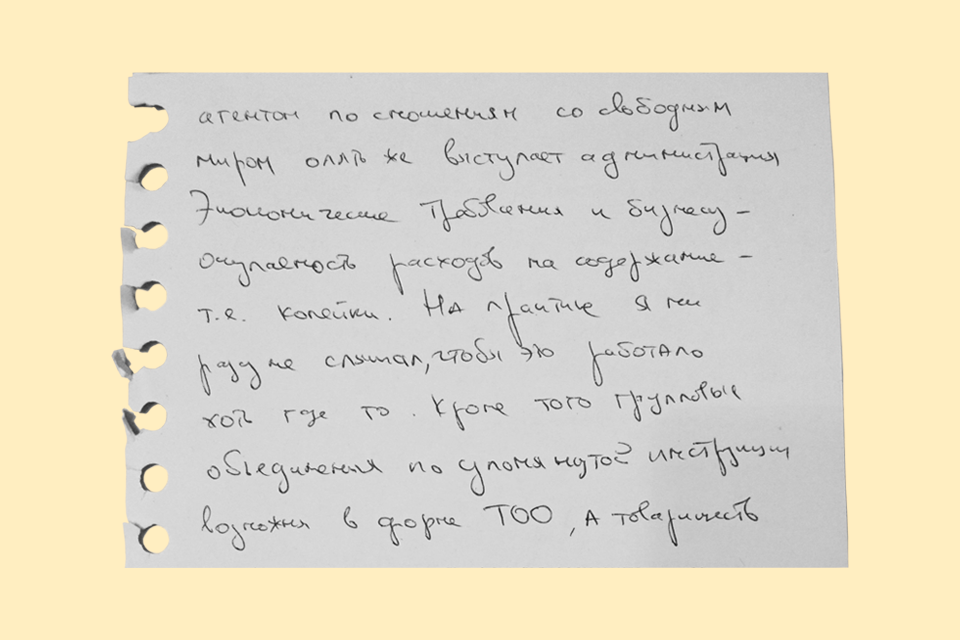 агентом по сношениям со свободным
миром опять же выступает администрация
Экономические требования к бизнесу -
окупаемость расходов на содержание -
т.е. копейки. На практике я ни
разу не слышал, чтобы это работало
хоть где то. Кроме того групповые
объединения по упомянутой инструкции
возможны в форме ТОО, А товариществ